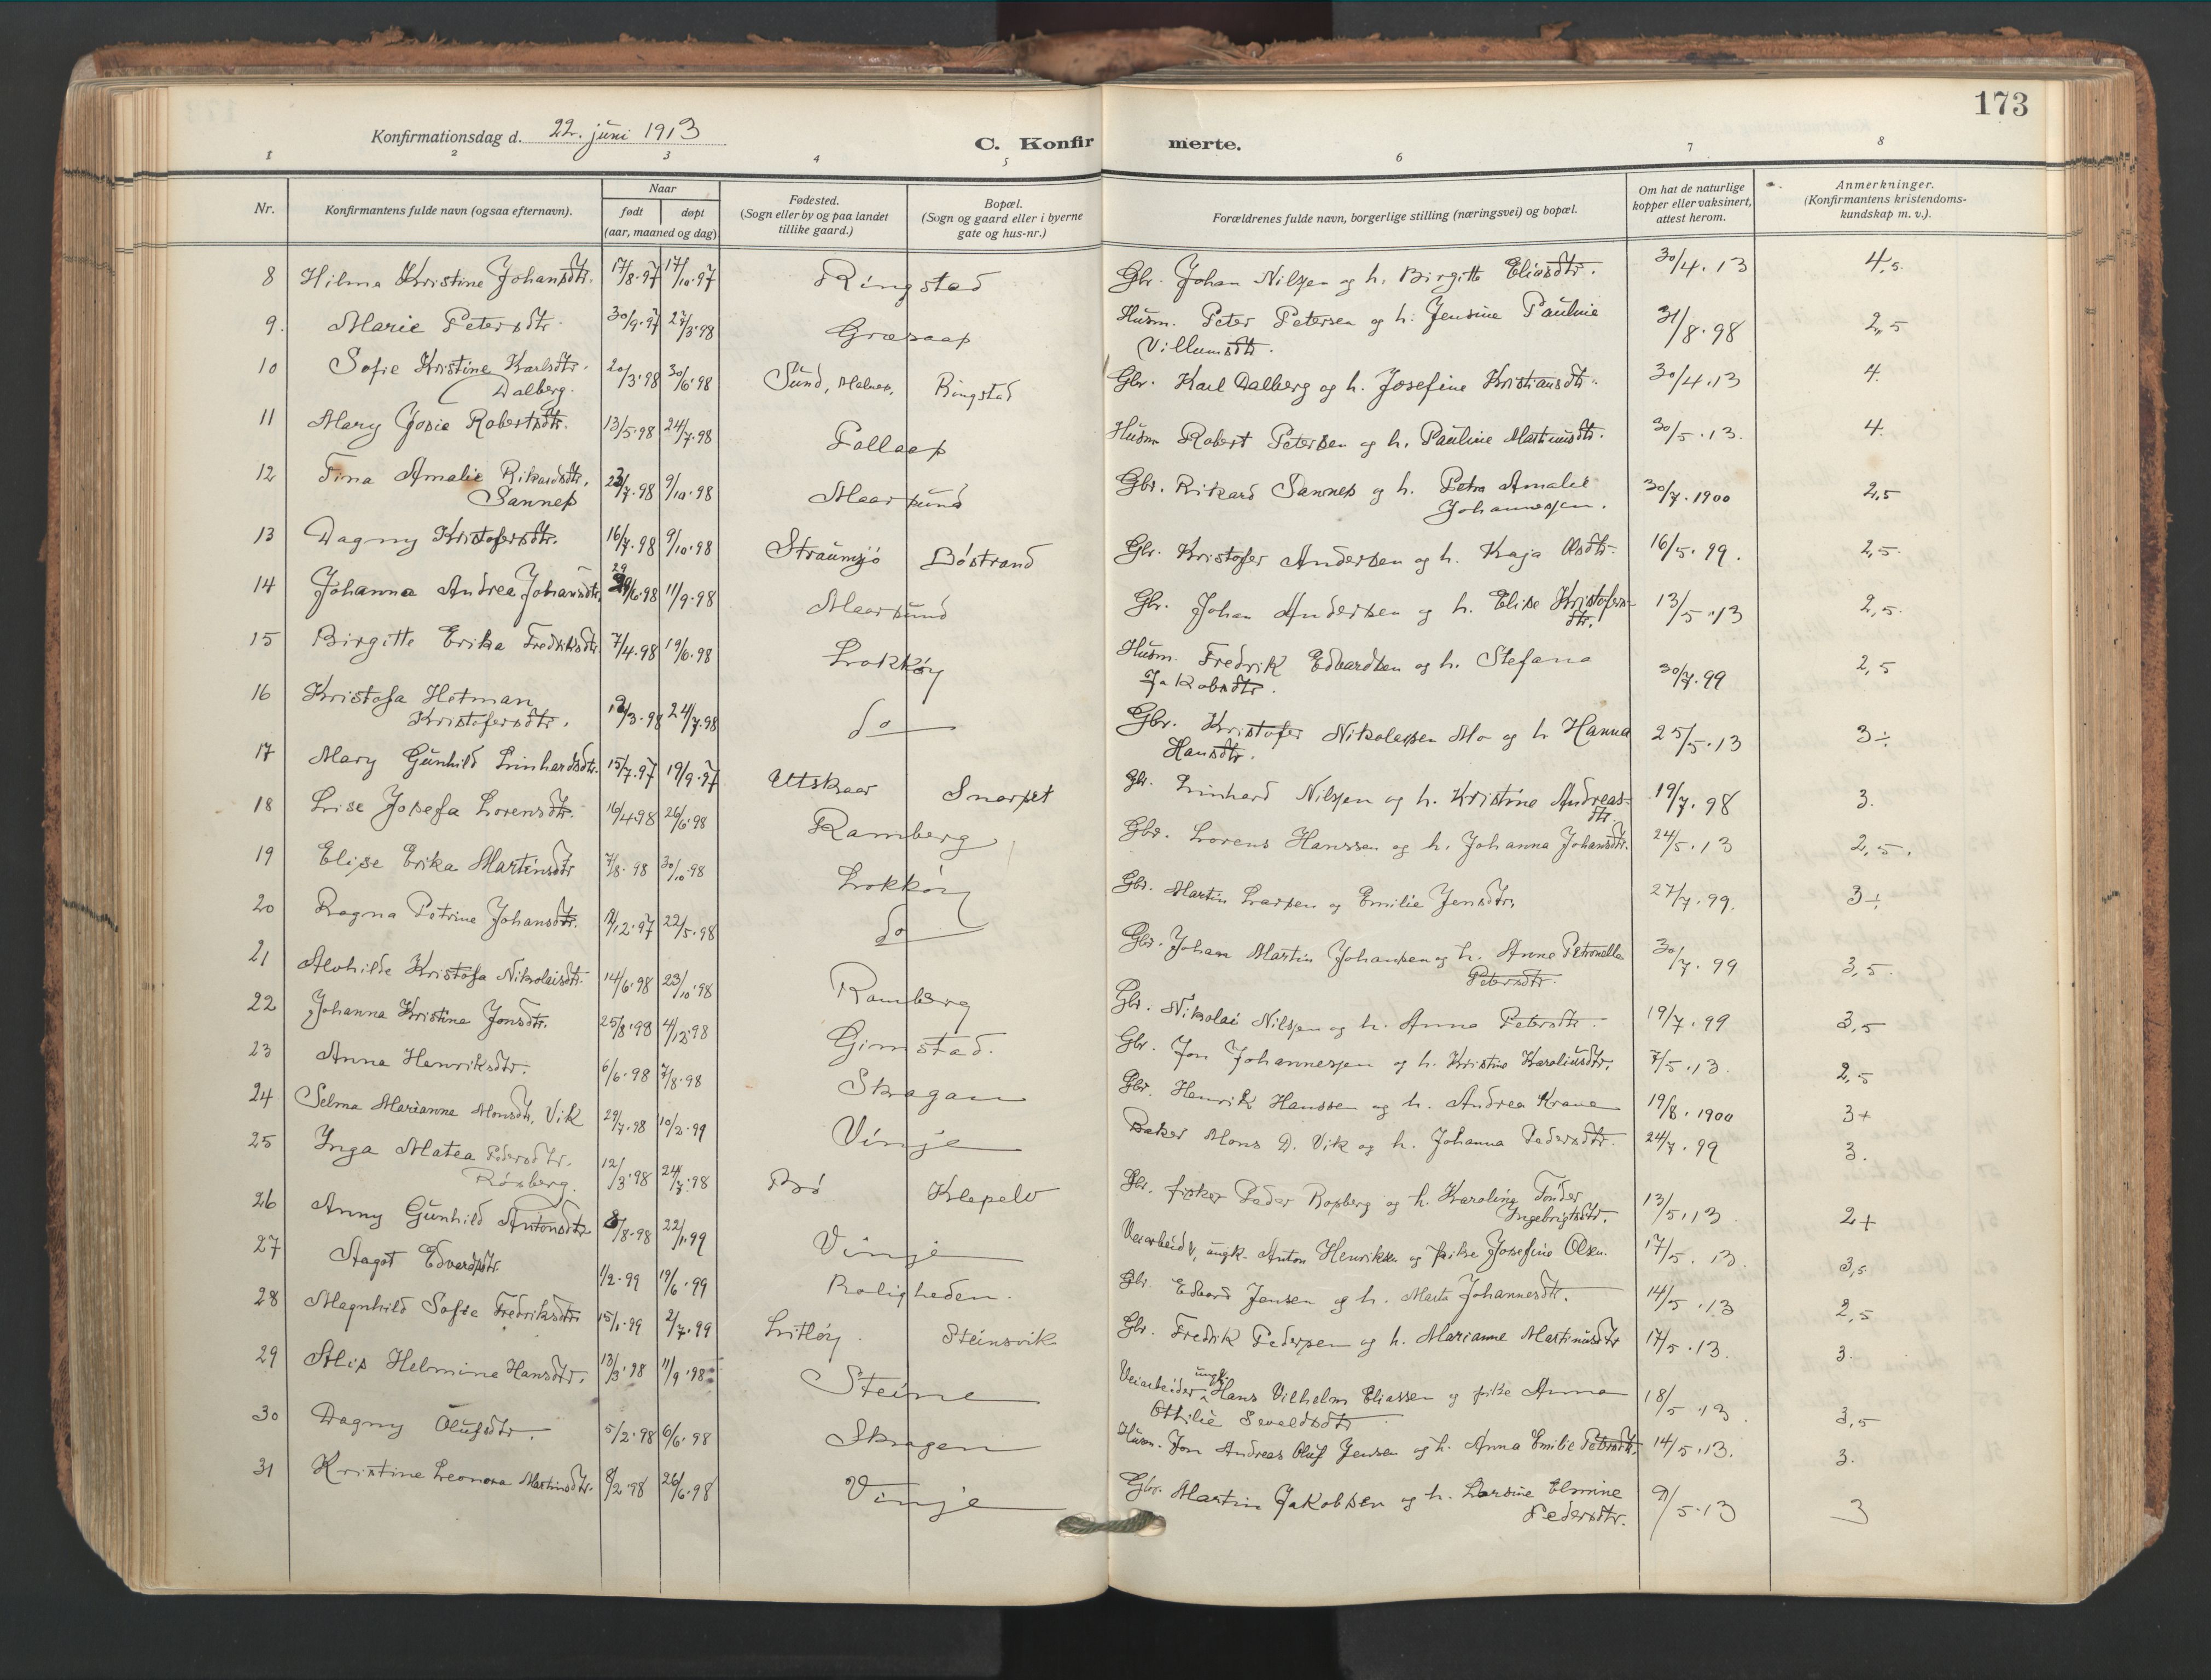 173
Konfirmationsdag d. 22. juni 1913
C. Konfirmerte.
1 2 3 4 5 6 7 8
Nr.
Konfirmantens fulde navn (ogsaa efternavn).
Naar
født døpt
(aar, maaned og dag)
Fødested.
(Sogn eller by og paa landet
tillike gaard.)
Bopæl.
(Sogn og gaard eller i byerne
gate og hus-nr.)
Forældrenes fulde navn, borgerlige stilling (næringsvei) og bopæl.
Om hat de naturlige
kopper eller vaksinert,
attest herom.
Anmerkninger.
(Konfirmantens kristendoms-
kundskap m. v.).
8 Hilma Kristine Johansdtr. 17/8.97 17/10.97 Ringstad Gbr. Johan Nilsen og h. Birgitte Eliasdtr. 30/4.13 4,5.
9. Marie Petersdtr. 30/9.97 27/3.98 Græsaas Husm. Peter Petersen og h. Jensine Pauline 31/8.98 2,5
Villumsdtr.
10 Sofie Kristine Karlsdtr. 20/3.98 30/6.98 Sund, Malnes, Ringstad Gbr. Karl Dalberg og h. Josefine Kristiansdtr. 30/4.13 4.
Dalberg.
11 Mary Josie Robertsdtr. 13/5.98 24/7.98 Follaas Husm Robert Petersen og h. Pauline Martinusdtr. 30/5.13. 4.
12 Tina Amalie Rikardsdtr. 23/7.98 9/10.98 Maarsund Gbr. Rikard Sannes og h. Petra Amalie 30/7.1900 2,5
Sannes Johannessen.
13 Dagny Kristofersdtr. 16/7.98 9/10.98 Straumsjø Bøstrand Gbr. Kristofer Andersen og h. Kaja Olsdtr. 16/5.99. 2,5.
14 Johanna Andrea Johansdtr. 29/6.98 11/9.98 Maarsund Gbr. Johan Andersen og h. Elise Kristofers- 13/5.13 2,5.
dtr.
15 Birgitte Erika Fredriksdtr. 7/4.98 19/6.98 Lokkøy Husm. Fredrik Edvardsen og h. Stefana 30/7.99 2,5
Jakobsdtr.
16 Kristofa Hotman 12/3.98 24/7.98 do Gbr. Kristofer Nikolaisen Mo og h Hanna 25/5.13 3÷
Kristofersdtr. Hansdtr.
17 Mary Gunhild Linhardsdtr. 15/7.97 19/9.97 Utskaar Snarset Gbr. Linhard Nilsen og h. Kristine Andreas- 19/7.98 3.
dtr.
18 Lise Josefa Lorensdtr. 16/4.98 26/6.98 Ramberg Gbr. Lorens Hanssen og h. Johanna Johansdtr. 24/5.13 2,5.
19 Elise Erika Martinsdtr 7/8.98 30/10.98 Lokkøy Gbr. Martin Larsen og Emilie Jensdtr. 27/7.99. 3÷
20 Ragna Petrine Johansdtr. 12.97 22/5.98 do Gbr. Johan Martin Johansen og h. Anne Petronella 30/7.99 3,5.
Petersdtr.
21 Alvhilde Kristofa Nikolaisdtr. 14/6.98 23/10.98 Ramberg Gbr. Nikolai Nilsen og h. Anna Petersdtr. 19/7.99 3,5
22 Johanna Kristine Jonsdtr. 25/8.98 4/12.98 Gimstad. Gbr. Jon Johannesen og h. Kristine Karoliusdtr. 7/5.13. 2,5
23 Anna Henriksdtr. 6/6.98 7/8.98 Skagan Gbr. Henrik Hanssen og h. Andrea Krane 19/8.1900 3+
24 Selma Marianne Monsdtr. Vik 29/7.98 10/2.99 Vinje Baker Mons D. Vik og h. Johanna Pedersdtr. 24/7.99 3.
25 Inga Matea Pedersdtr. 12/3.98 24/7.98 Bø Klepelv Gbr. fisker Peder Rosberg og h. Karoline Tønder 13/5.13 2+
Røsberg. Ingebrigtsdtr.
26 Anny Gunhild Antonsdtr 8/8.98 22/1.99 Vinje Veiarbeider, ungk. Anton Henriksen og pike Josefine Olsen. 17/5.13. 3,5
27 Aagot Edvardsdtr. 1/2.99 19/6.99 Roligheden. Gbr. Edvard Jensen og h. Marta Johannesdtr. 14/5.13 2,5
28 Magnhild Sofie Fredriksdtr. 15/1.99 2/7.99 Litløy. Steinsvik Gbr. Fredrik Pedersen og h. Marianne Martinusdtr 17/5.13. 3.
29 Alis Helmine Hansdtr. 13/3.98 11/9.98 Steine Veiarbeider ungk. Hans Vilhelm Eliassen og pike Anna 18/5.13 3,5
Othilie Sevaldsdtr
30 Dagny Olufsdtr. 5/2.98 6/6.98 Skagen Husm. Jon Andreas Oluf Jensen og h. Anna Emilie Petersdtr. 14/5.13. 3.
31 Kristine Leonora Martinsdtr. 8/2.98 26/6.98 Vinje Gbr. Martin Jakobsen og h. Lorsine Elmine 9/5.13 3
Pedersdtr.